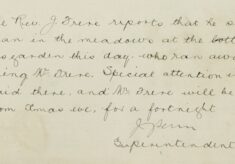 e Rev. J. Frere reports that he s
an in the meadows at the bott
s garden this day, who ran awa
ing Mr. Frere. Special attention w
aid there, and Mr. Frere will be
om Xmas eve, for a fortnight
Superintendent